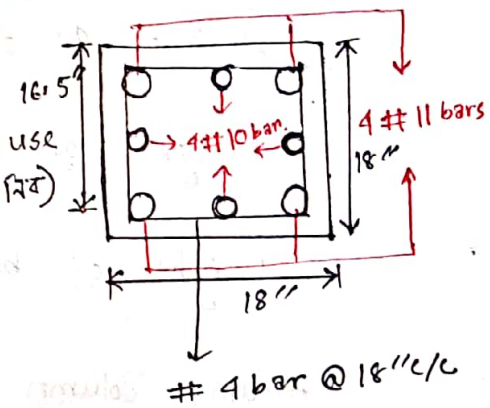 16.5"
use
নিব)
4#10 bar.
4 # 11 bars
18"
18"
# 4 bar @ 18" c/c